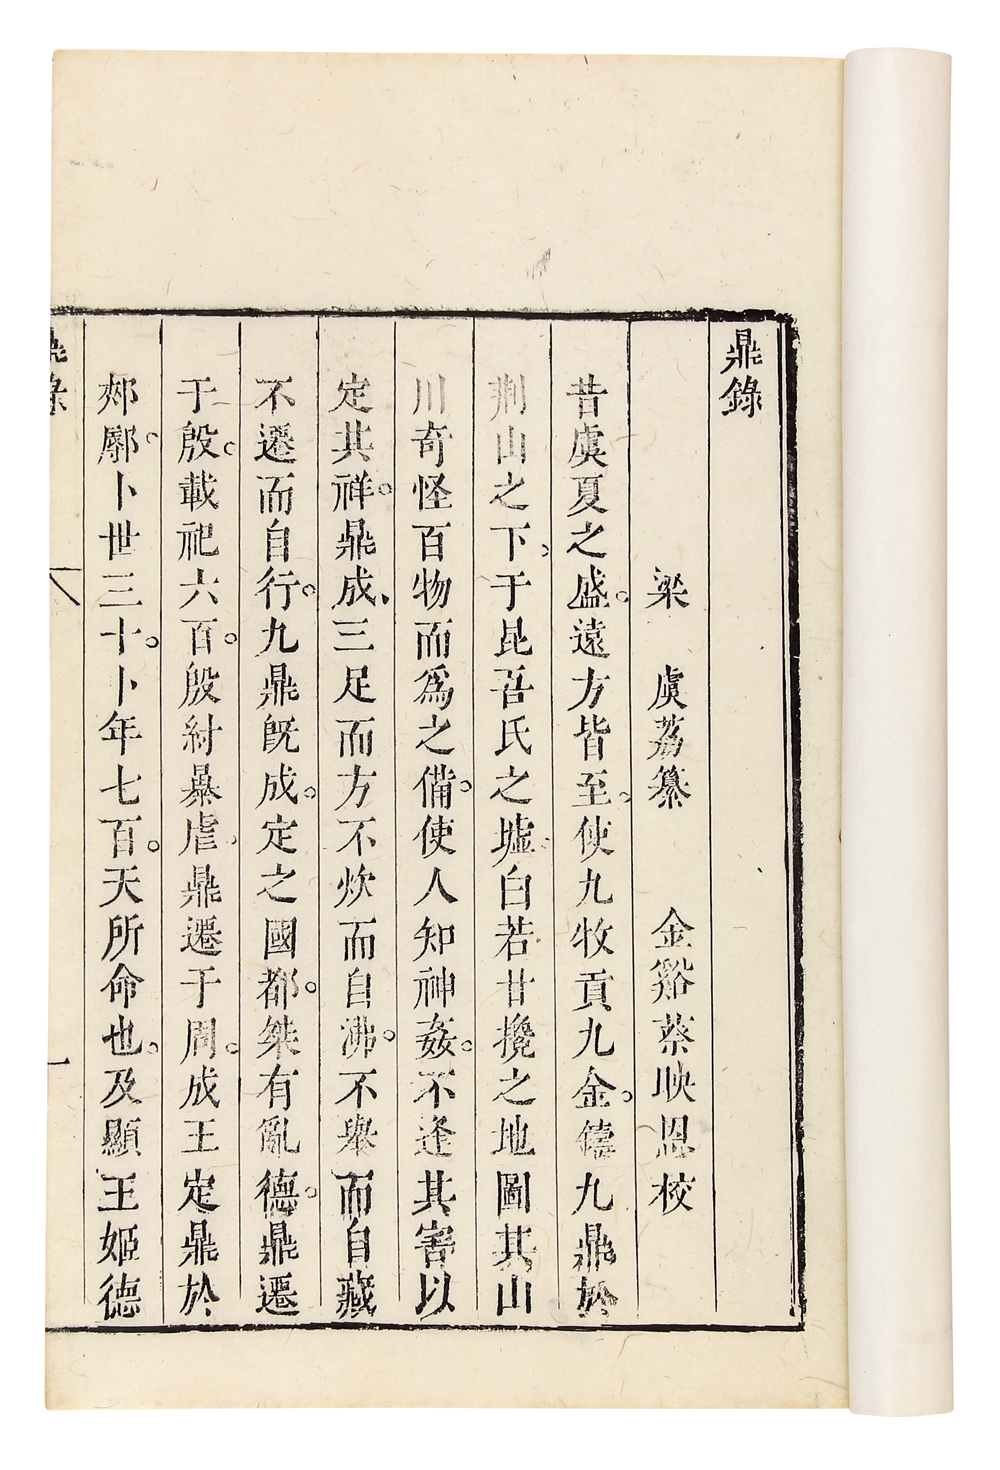 鼎錄
梁 虞荔纂 金谿蔡映恩校
昔虞夏之盛。遠方皆至。使九牧貢九金。鑄九鼎於
荆山之下。于昆吾氏之墟。白若甘攙之地圖其山
川奇怪百物而爲之備。使人知神姦。不逢其害以
定其祥。鼎成、三足而方不炊而自沸。不舉而自藏
不遷而自行。九鼎既成。定之國都。桀有亂德。鼎遷
于殷。載祀六百。殷紂暴虐。鼎遷于周。成王定鼎於
郟鄏。卜世三十。卜年七百。天所命也。及顯王姬德
鼎錄
一